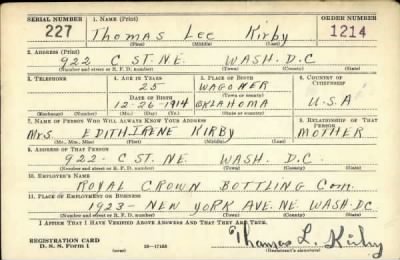 SERIAL NUMBER 1. NAME (Print) ORDER NUMBER
227 Thomas Lee Kirby 1214
(First) (Middle) (Last)
2. ADDRESS (Print)
922 C ST. N.E. WASH. D.C
(Number and street or R. F. D. number) (Town) (County) (State)
3. TELEPHONE 4. AGE IN YEARS 5. PLACE OF BIRTH 6. COUNTRY OF CITIZENSHIP
25 WAGONER
(Town or county)
DATE OF BIRTH
12-26-1914 OKLAHOMA U.S.A
(Exchange) (Number) (Mo.) (Day) (Yr.) (State or country)
7. NAME OF PERSON WHO WILL ALWAYS KNOW YOUR ADDRESS 8. RELATIONSHIP OF THAT PERSON
Mrs. EDITH IRENE KIRBY MOTHER
(Mr., Mrs., Miss) (First) (Middle) (Last)
9. ADDRESS OF THAT PERSON
922- C ST. N.E. WASH. D.C.
(Number and street or R. F. D. number) (Town) (County) (State)
10. EMPLOYER'S NAME
ROYAL CROWN BOTTLING Com.
11. PLACE OF EMPLOYMENT OR BUSINESS
1923- NEW YORK AVE. NE. WASH. DC.
(Number and street or R. F. D. number) (Town) (County) (State)
I AFFIRM THAT I HAVE VERIFIED ABOVE ANSWERS AND THAT THEY ARE TRUE.
REGISTRATION CARD Thomas L. Kirby
D. S. S. Form 1 (over) (Registrant's signature)